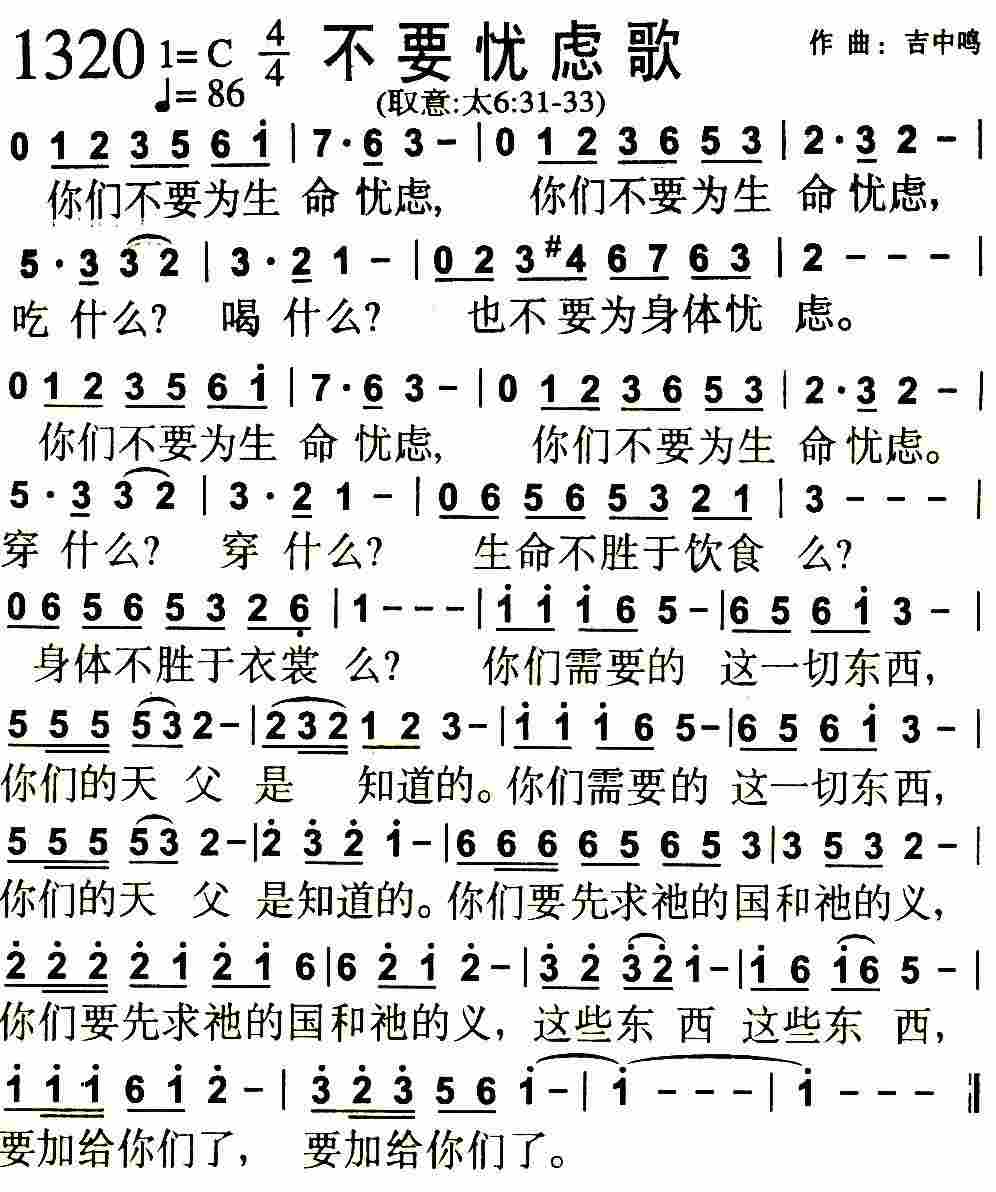 1320 1=C 4/4 不要忧虑歌 作曲：吉中鸣
♩=86 (取意:太6:31-33)
0 1 2 3 5 6 i̇ | 7·6 3 - | 0 1 2 3 6 5 3 | 2·3 2 - |
你们不要为生 命 忧虑, 你们不要为生 命 忧虑,
5·3 3 2 | 3·2 1 - | 0 2 3 #4 6 7 6 3 | 2 - - - |
吃 什么? 喝 什么? 也不要为身体忧 虑。
0 1 2 3 5 6 i̇ | 7·6 3 - | 0 1 2 3 6 5 3 | 2·3 2 - |
你们不要为生 命 忧虑, 你们不要为生 命 忧虑。
5·3 3 2 | 3·2 1 - | 0 6 5 6 5 3 2 1 | 3 - - - |
穿 什么? 穿 什么? 生命不胜于饮食 么?
0 6 5 6 5 3 2 6̣ | 1 - - - | i̇ i̇ i̇ 6 5 - | 6 5 6 i̇ 3 - |
身体不胜于衣裳 么? 你们需要的 这一切东西,
5 5 5 5 3 2 - | 2 3 2 1 2 3 - | i̇ i̇ i̇ 6 5 - | 6 5 6 i̇ 3 - |
你们的天 父 是 知道的。你们需要的 这一切东西,
5 5 5 5 3 2 - | 2̇ 3̇ 2̇ i̇ - | 6 6 6 6 5 6 5 3 | 3 5 3 2 - |
你们的天 父 是知道的。你们要先求祂的国和祂的义,
2̇ 2̇ 2̇ 2̇ i̇ 2̇ i̇ 6 | 6 2̇ i̇ 2̇ - | 3̇ 2̇ 3̇ 2̇ i̇ - | i̇ 6 i̇ 6 5 - |
你们要先求祂的国和祂的义, 这些东 西 这些东 西,
i̇ i̇ i̇ 6 i̇ 2̇ - | 3̇ 2̇ 3̇ 5 6 i̇ - | i̇ - - - | i̇ - - - ‖
要加给你们了, 要加给你们了。